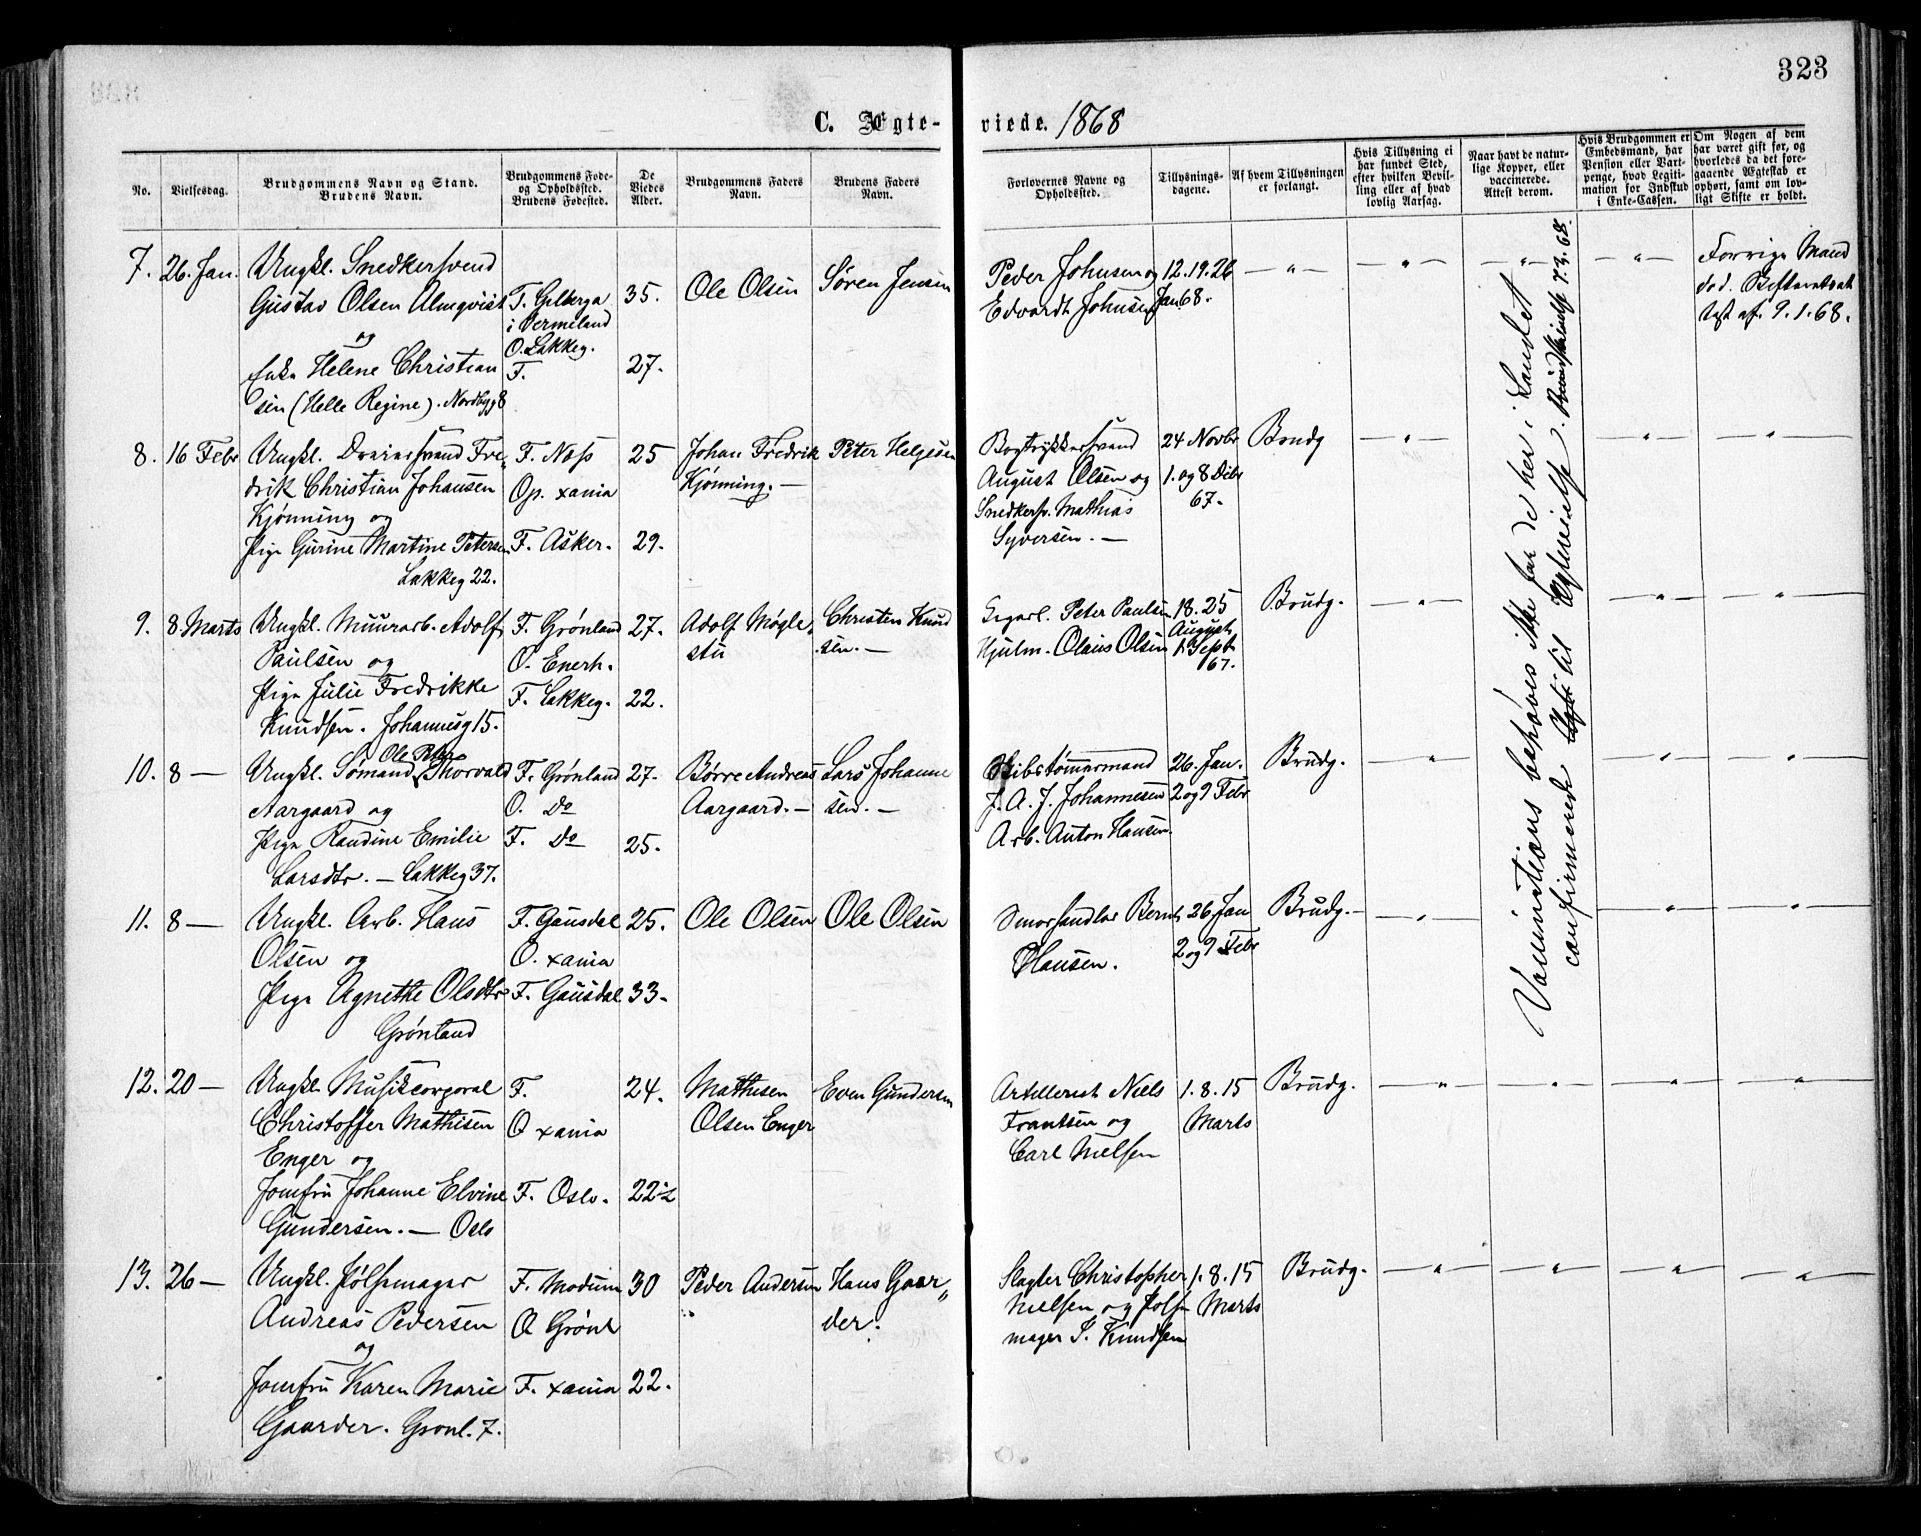 323
C. Ægte-
viede. 1868
No.
Vielsesdag.
Brudgommens Navn og Stand.
Brudens Navn.
Brudgommens Føde-
og Opholdssted.
Brudens Fødested.
De
Viedes
Alder.
Brudgommens Faders
Navn.
Brudens Faders
Navn.
Forlovernes Navne og
Opholdssted.
Tillysnings-
dagene.
Af hvem Tillysningen
er forlangt.
Hvis Tillysning ei
har fundet Sted,
efter hvilken Bevil-
ling eller af hvad
lovlig Aarsag.
Naar havt de natur-
lige Kopper, eller
vaccinerede.
Attest derom.
Hvis Brudgommen er
Embedsmand, har
Pension eller Vart-
penge, hvad Legiti-
mation for Indskud
i Enke-Cassen.
Om Nogen af dem
har været gift før, og
hvorledes da det fore-
gaaende Ægteskab er
ophørt, samt om lov-
ligt Skifte er holdt.
7. 26. Jan.
Ungkl. Snedkersvend
Gustav Olsen Almqvist
og
Enke Helene Christian
sen (Helle Regine). Nordbygg 8
F. Gilberga
i Vermeland
O. Lakkeg.
F.
35.
27.
Ole Olsen
Søren Jensen
Peder Johnsen og
Edvardt Johnsen
12. 19. 26
Jan 68.
— " —
— " —
— " —
— " —
Forrige Mand
død.
af 9.1.68.
8. 16 Febr
Ungkl. Dreiersvend Fre-
drik Christian Johansen
Kjønning og
Pige Gurine Martine Petersen
Lakkeg 22.
F. Næs
Op. xania
F. Asker.
25
29.
Johan Fredrik
Kjønning. —
Peter Helgesen
Bogtrykkersvend
August Olsen og
Snedkersv. Mathias
Syversen. —
24 Novbr
1. og 8 Decbr
67.
Brudg
— " —
— " —
— " —
9. 8 Marts
Ungkl. Muurarb. Adolf
Paulsen og
Pige Julie Fredrikke
Knudsen. Johannesg 15.
F. Grønland
O. Enerh.
F. Lakkeg.
27.
22.
Adolf Mogle-
stu
Christen Knud
sen. —
Cigarl. Peter Paulsen
Hjulm. Olaus Olsen
18. 25
August
1 Septb
67.
Brudg.
— " —
— " —
— " —
10. 8 —
Ole Peter
Ungkl. Sømand Thorvald
Aargaard og
Pige Randine Emilie
Larsdtr. — Lakkeg 37.
F. Grønland
O. Do
F. Do
27.
25.
Børre Andreas
Aargaard. —
Lars Johanne
sen. —
Skibstømmermand
J. A. J. Johannesen
Arb. Anton Hansen
26. Jan.
2 og 9 Febr
Brudg.
— " —
— " —
— " —
11. 8 —
Ungkl. Arb. Hans
Olsen og
Pige Agnethe Olsdtr
Grønland
F. Gausdal
O. xania
F. Gausdal
25.
33.
Ole Olsen
Ole Olsen
Smørhandler Bernt
Hansen.
26. Jan
2 og 9 Febr
Brudg. —
— " —
— " —
— " —
Vaccinations behøves ikke for de her i Landet
confirmerede til Ægtevielse. 7.3.68.
12. 20 —
Ungkl. Musikcorporal
Christoffer Mathisen
Enger og
Jomfru Johanne Elvine
Gundersen. — Oslo
F.
O xania
F. Oslo.
24.
22½
Mathisen
Olsen Enger
Even Gundersen
Artillerist Niels
Frantsen og
Carl Nielsen
1. 8. 15
Marts
Brudg.
— " —
— " —
— " —
— " —
13. 26 —
Ungkl. Pølsemager
Andreas Pedersen
og
Jomfru Karen Marie
Gaarder. Gronl. 7.
F. Modum
O Grønl
F. xania
30
22.
Peder Andersen
Hans Gaar-
der.
Slagter Christopher
Nielsen og Pølse
mager S. Knudsen
1. 8. 15
Marts
Brudg.
— " —
— " —
— " —
— " —